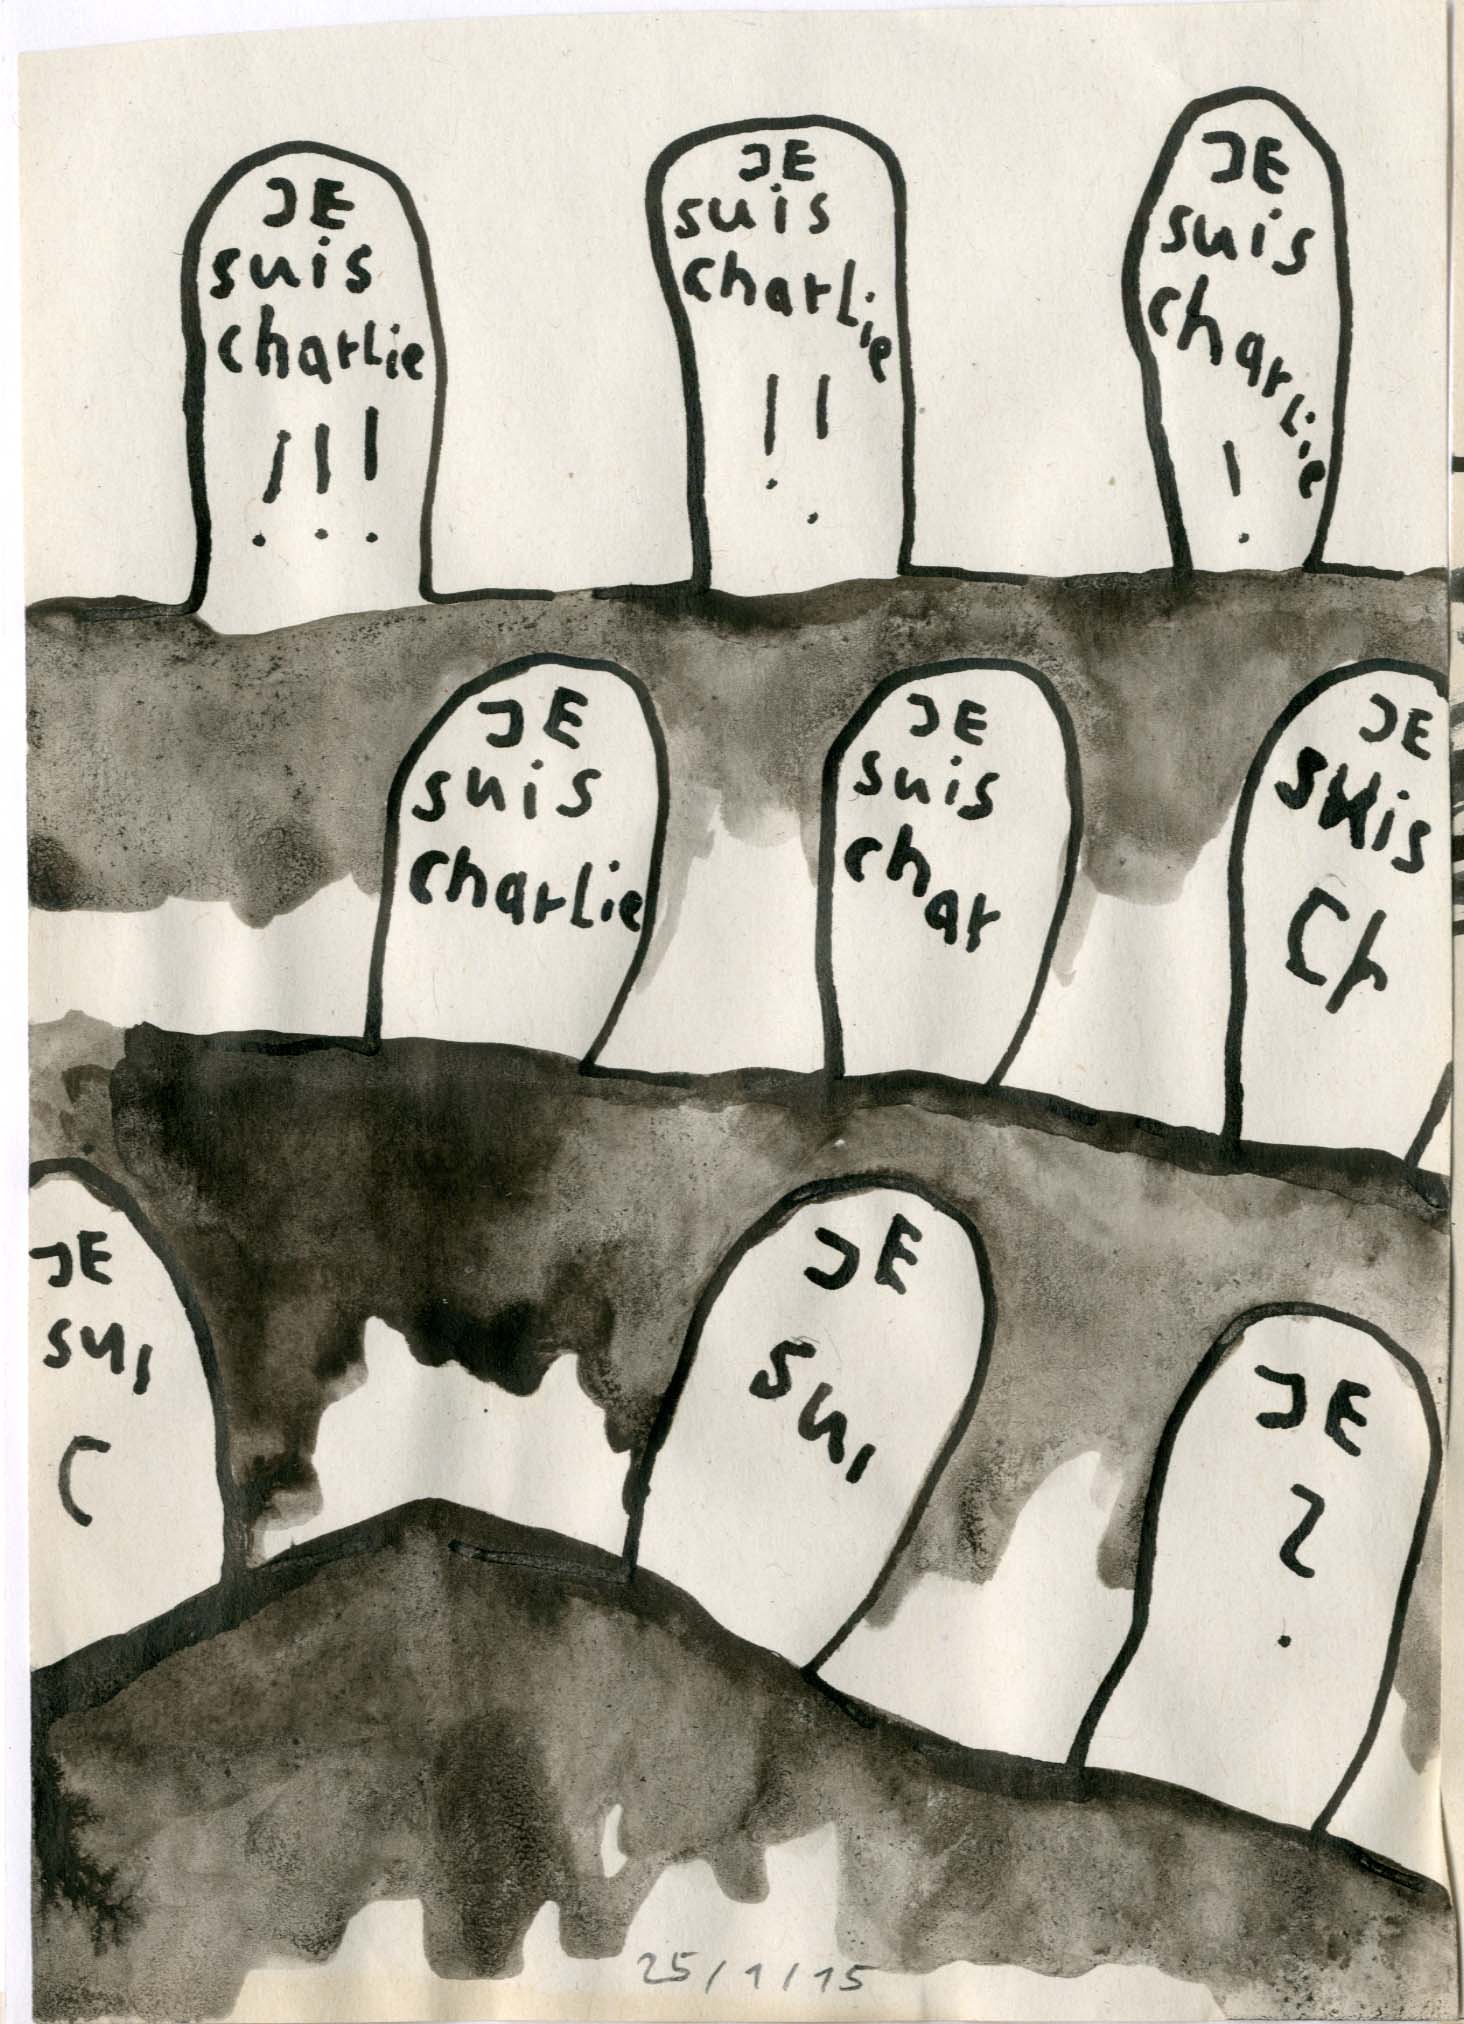 JE
suis
charlie
!!!
JE
suis
charlie
!!
JE
suis
charlie
!
JE
suis
charlie
JE
suis
char
JE
suis
Ch
JE
sui
C
JE
sui
JE
?
25/1/15